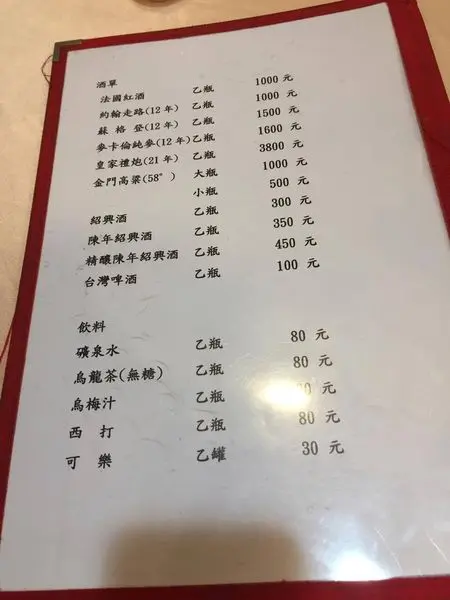 酒單
法國紅酒 乙瓶 1000 元
約翰走路(12 年) 乙瓶 1000 元
蘇 格 登(12 年) 乙瓶 1500 元
麥卡倫純麥(12 年) 乙瓶 1600 元
皇家禮炮(21 年) 乙瓶 3800 元
金門高粱(58°) 大瓶 1000 元
小瓶 500 元
紹興酒 乙瓶 300 元
陳年紹興酒 乙瓶 350 元
精釀陳年紹興酒 乙瓶 450 元
台灣啤酒 乙瓶 100 元
飲料
礦泉水 乙瓶 80 元
烏龍茶(無糖) 乙瓶 80 元
烏梅汁 乙瓶 元
西 打 乙瓶 80 元
可 樂 乙罐 30 元